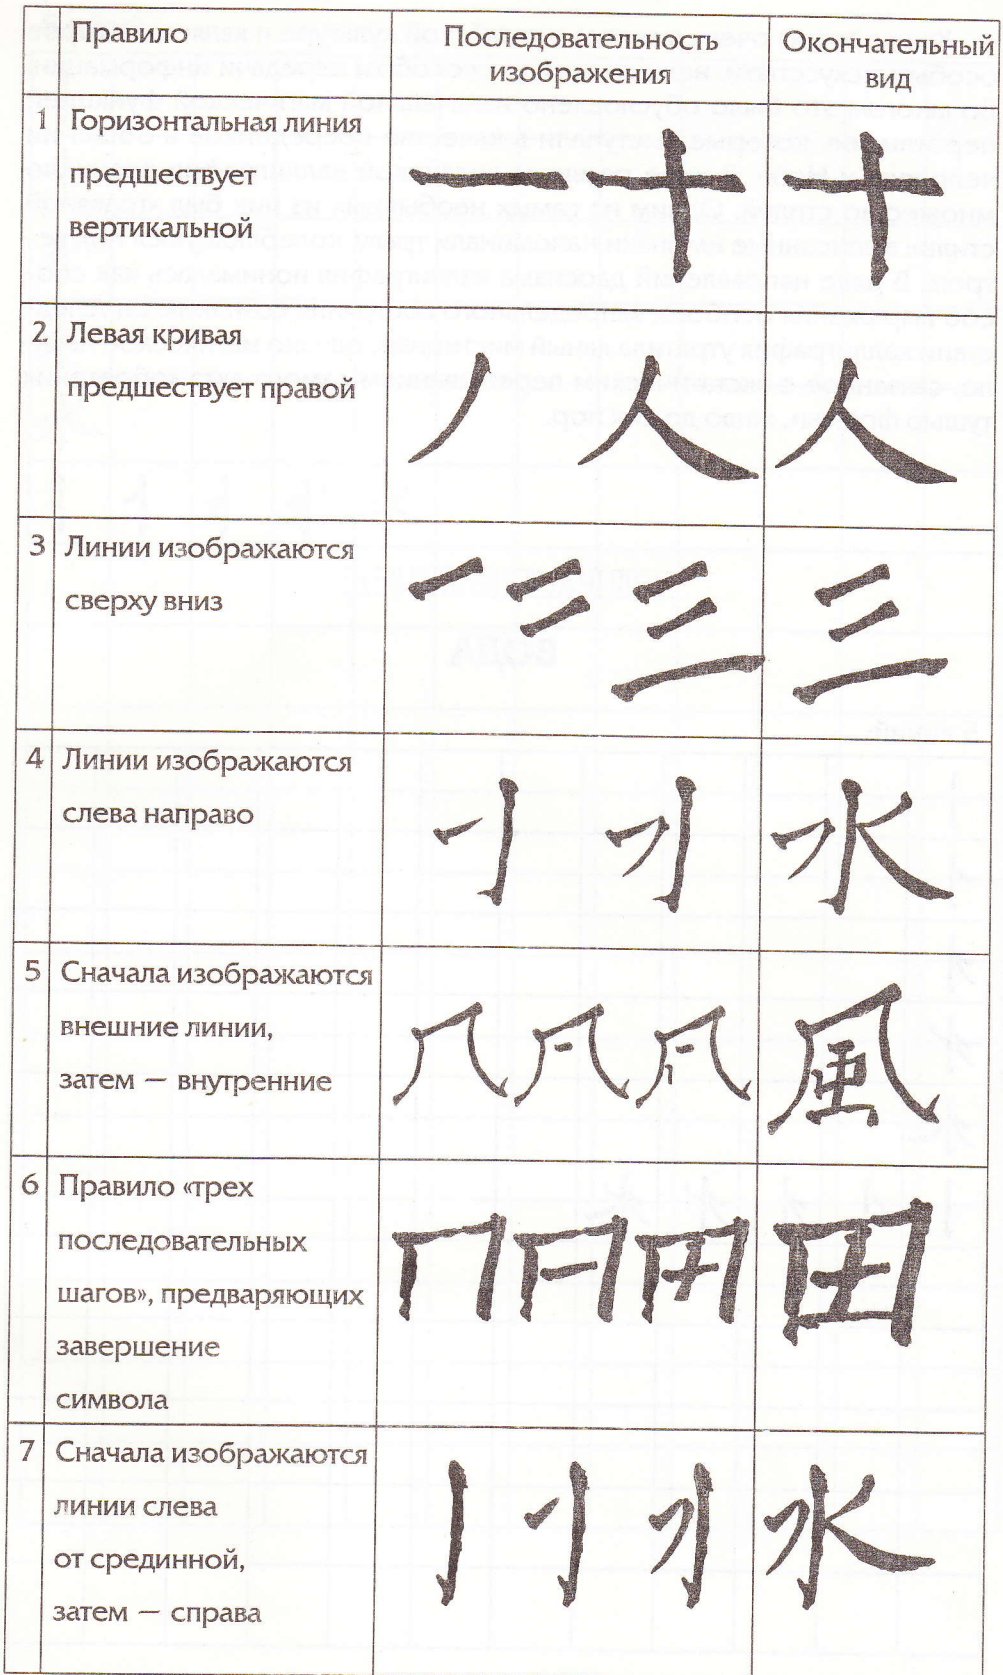 Правило
Последовательность
изображения
Окончательный
вид
1 Горизонтальная линия
предшествует
вертикальной
一 十 十
2 Левая кривая
предшествует правой
丿 人 人
3 Линии изображаются
сверху вниз
一 二 三 三
4 Линии изображаются
слева направо
水
5 Сначала изображаются
внешние линии,
затем — внутренние
風
6 Правило «трех
последовательных
шагов», предваряющих
завершение
символа
冂 田
7 Сначала изображаются
линии слева
от срединной,
затем — справа
亅 水